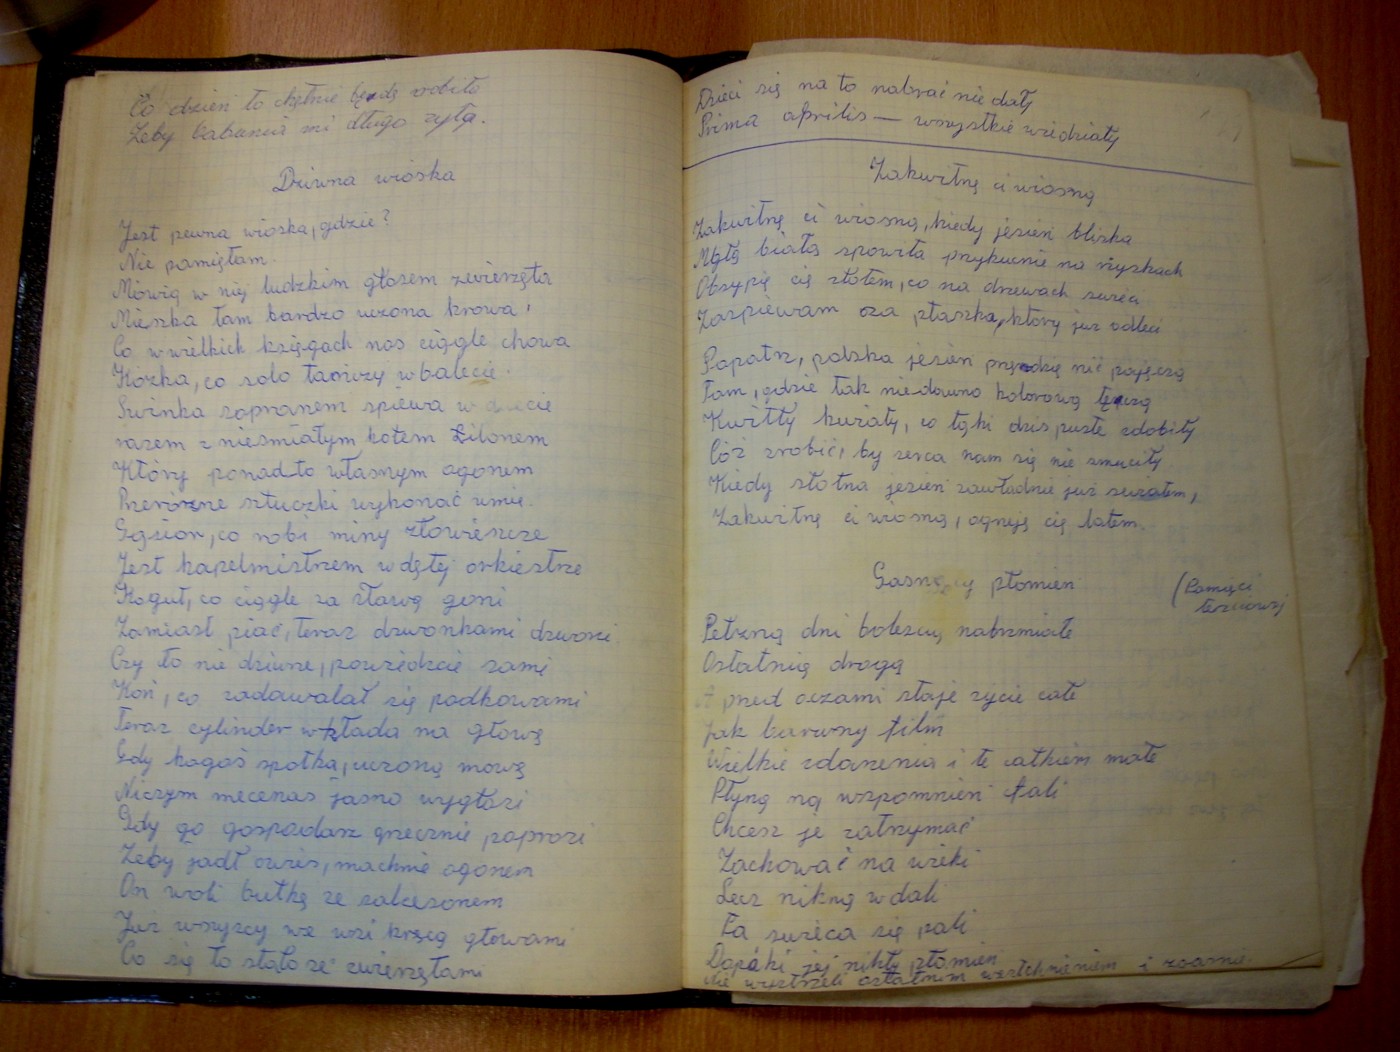 Co dzień to chętnie będę robiło
Żeby babunia mi długo żyła.
Dziwna wioska
Jest pewna wioska, gdzie?
Nie pamiętam.
Mówią w niej ludzkim głosem zwierzęta
Mieszka tam bardzo uczona krowa,
Co w wielkich księgach nos ciągle chowa
Kózka, co solo tańczy w balecie.
Świnka sopranem śpiewa w duecie
razem z nieśmiałym kotem Filonem
Który ponadto własnym ogonem
Przeróżne sztuczki wykonać umie.
Gąsior, co robi miny złowieszcze
Jest kapelmistrzem w dętej orkiestrze
Kogut, co ciągle za sławą goni
Zamiast piać, teraz dzwonkami dzwoni
Czy to nie dziwne, powiedzcie sami
Koń, co zadawalał się podkowami
Teraz cylinder wkłada na głowę
Gdy kogoś spotka, uczoną mowę
Niczym mecenas jasno wygłosi
Gdy go gospodarz grzecznie poprosi
Żeby jadł owies, machnie ogonem
On woli bułkę ze salcesonem
Już wszyscy we wsi kręcą głowami
Co się to stało ze zwierzętami
Dzieci się na to nabrać nie dały
Prima aprilis — wszystkie wiedziały
Zakwitnę ci wiosną
Zakwitnę ci wiosną, kiedy jesień bliska
Mgłą białą spowita przykucnie na rżyskach
Obsypię cię złotem, co na drzewach świeci
Zaśpiewam za ptaszka, który już odleci
Popatrz, polska jesień przędzie nić pajęczą
Tam, gdzie tak niedawno kolorową tęczą
Kwitły kwiaty, co łąki dziś puste zdobiły
Cóż zrobić, by serca nam się nie smuciły
Kiedy słotna jesień zawładnie już światem,
Zakwitnę ci wiosną, ogrzeję cię latem.
Gasnący płomień
(Pamięci
teściowej
Pełzną dni boleścią nabrzmiałe
Ostatnią drogą
A przed oczami staje życie całe
Jak barwny film
Wielkie zdarzenia i te całkiem małe
Płyną na wspomnień fali
Chcesz je zatrzymać
Zachować na wieki
Lecz nikną w dali
Ta świeca się pali
Dopóki jej nikły płomień
Nie wystrzeli ostatnim westchnieniem i zgaśnie.